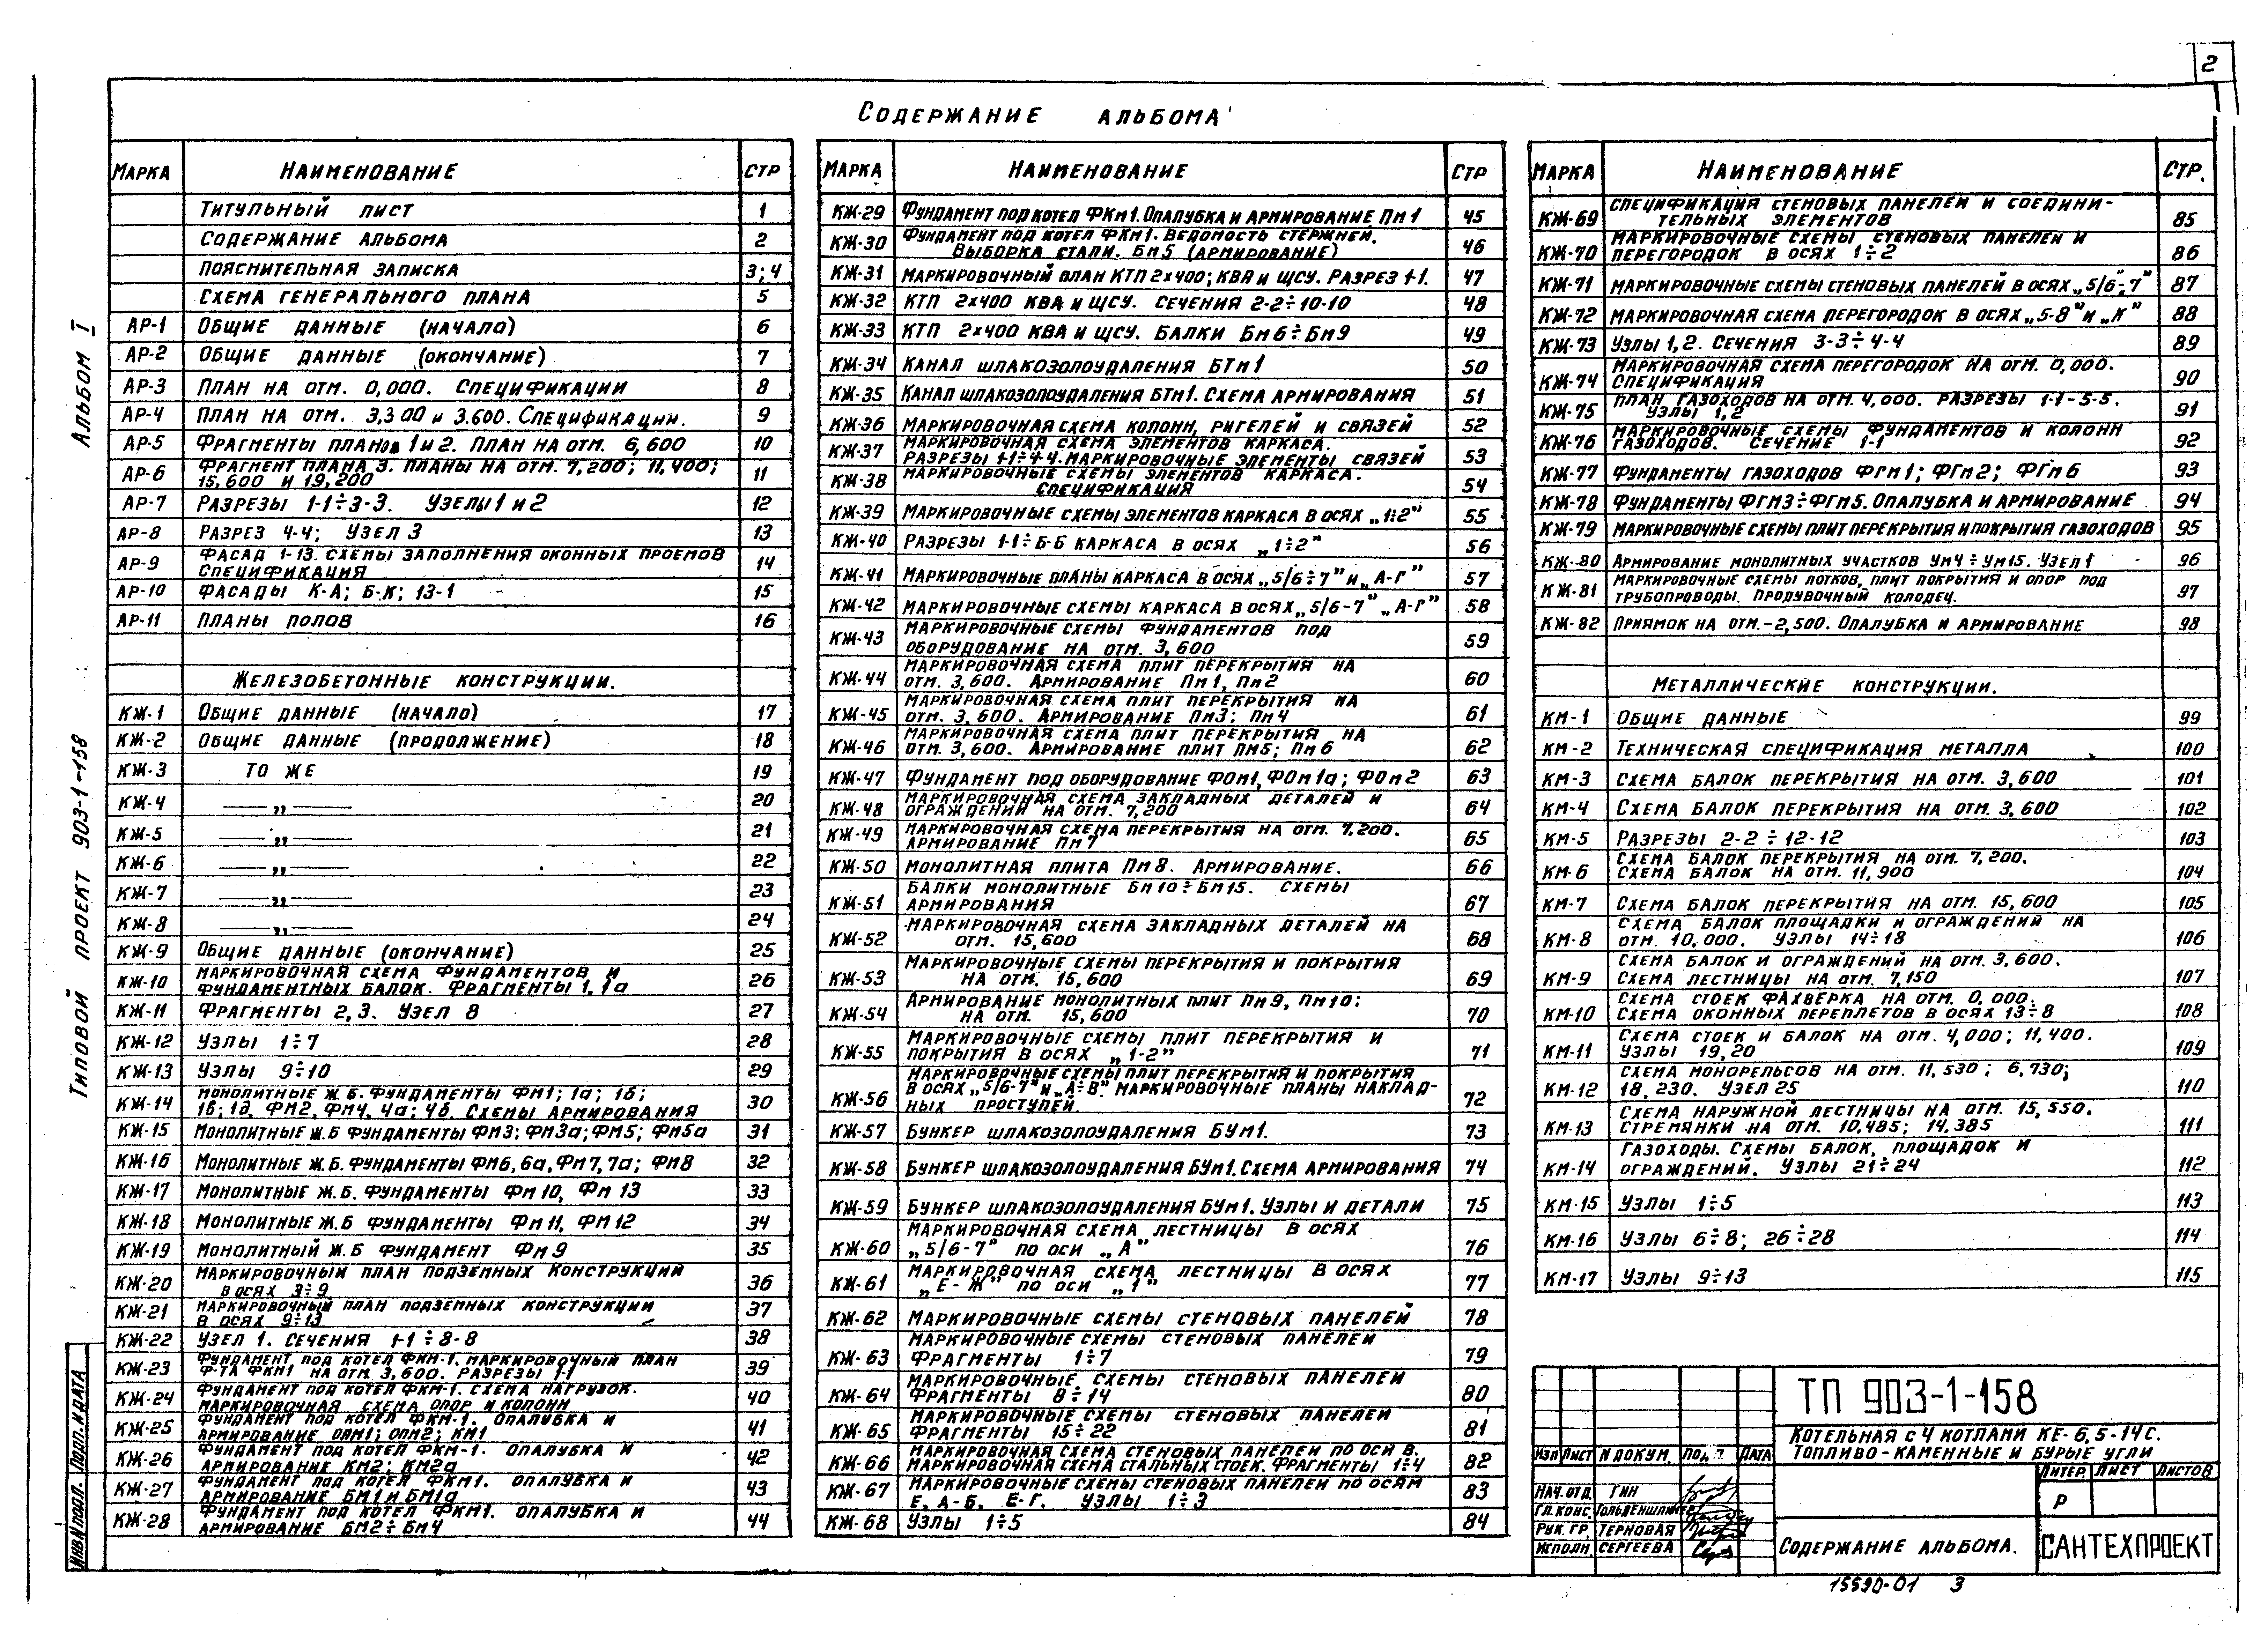 2
Содержание альбома
Марка Наименование Стр
Титульный лист 1
Содержание альбома 2
Пояснительная записка 3; 4
Схема генерального плана 5
АР-1 Общие данные (начало) 6
АР-2 Общие данные (окончание) 7
АР-3 План на отм. 0,000. Спецификации 8
АР-4 План на отм. 3,300 и 3.600. Спецификации. 9
АР-5 Фрагменты планов 1 и 2. План на отм. 6,600 10
АР-6 Фрагмент плана 3. Планы на отм. 7,200; 11,400;
15,600 и 19,200 11
АР-7 Разрезы 1-1÷3-3. Узелы 1 и 2 12
АР-8 Разрез 4-4; Узел 3 13
АР-9 Фасад 1-13. Схемы заполнения оконных проемов
Спецификация 14
АР-10 Фасады К-А; Б-К; 13-1 15
АР-11 Планы полов 16
Железобетонные конструкции.
КЖ-1 Общие данные (начало) 17
КЖ-2 Общие данные (продолжение) 18
КЖ-3 То же 19
КЖ-4 —„— 20
КЖ-5 —„— 21
КЖ-6 —„— 22
КЖ-7 —„— 23
КЖ-8 —„— 24
КЖ-9 Общие данные (окончание) 25
КЖ-10 Маркировочная схема фундаментов и
фундаментных балок. Фрагменты 1, 1а 26
КЖ-11 Фрагменты 2, 3. Узел 8 27
КЖ-12 Узлы 1÷7 28
КЖ-13 Узлы 9÷10 29
КЖ-14 Монолитные ж.б. фундаменты ФМ1; 1а; 1б;
1в; 1д, ФМ2, ФМ4, 4а; 4б. Схемы армирования 30
КЖ-15 Монолитные ж.б фундаменты ФМ3; ФМ3а; ФМ5; ФМ5а 31
КЖ-16 Монолитные ж.б. фундаменты ФМ6, 6а, Фм7, 7а; ФМ8 32
КЖ-17 Монолитные ж.б. фундаменты Фм 10, Фм 13 33
КЖ-18 Монолитные ж.б фундаменты Фм 11, ФМ 12 34
КЖ-19 Монолитный ж.б фундамент Фм 9 35
КЖ-20 Маркировочный план подземных конструкций
в осях 3÷9 36
КЖ-21 Маркировочный план подземных конструкции
в осях 9÷13 37
КЖ-22 Узел 1. Сечения 1-1÷8-8 38
КЖ-23 Фундамент под котел ФКМ-1. Маркировочный план
ф-та ФКМ1 на отм 3,600. Разрезы 1-1 39
КЖ-24 Фундамент под котел ФКМ-1. Схема нагрузок.
Маркировочная схема опор и колонн 40
КЖ-25 Фундамент под котел ФКМ-1. Опалубка и
армирование ОПМ1; ОПМ2; КМ1 41
КЖ-26 Фундамент под котел ФКМ-1. Опалубка и
армирование КМ2; КМ2а 42
КЖ-27 Фундамент под котел ФКМ1. Опалубка и
армирование БМ1 и БМ1а 43
КЖ-28 Фундамент под котел ФКМ1. Опалубка и
армирование БМ2÷БМ4 44
Марка Наименование Стр
КЖ-29 Фундамент под котел ФКм1. Опалубка и армирование Пм 1 45
КЖ-30 Фундамент под котел ФКм1. Ведомость стержней.
Выборка стали. Бм5 (армирование) 46
КЖ-31 Маркировочный план КТП 2х400; ква и ЩСУ. Разрез 1-1. 47
КЖ-32 КТП 2х400 ква и ЩСУ. Сечения 2-2÷10-10 48
КЖ-33 КТП 2х400 ква и ЩСУ. Балки Бм 6÷Бм 9 49
КЖ-34 Канал шлакозолоудаления БТм 1 50
КЖ-35 Канал шлакозолоудаления БТм1. Схема армирования 51
КЖ-36 Маркировочная схема колонн, ригелей и связей 52
КЖ-37 Маркировочная схема элементов каркаса.
Разрезы 1-1÷4-4. Маркировочные элементы связей 53
КЖ-38 Маркировочные схемы элементов каркаса.
Спецификация 54
КЖ-39 Маркировочные схемы элементов каркаса в осях „1÷2" 55
КЖ-40 Разрезы 1-1÷Б-Б каркаса в осях „1÷2" 56
КЖ-41 Маркировочные планы каркаса в осях „5/6÷7" и „А-Г" 57
КЖ-42 Маркировочные схемы каркаса в осях „5/6-7" „А-Г" 58
КЖ-43 Маркировочные схемы фундаментов под
оборудование на отм. 3,600 59
КЖ-44 Маркировочная схема плит перекрытия на
отм. 3,600. Армирование Пм 1, Пм 2 60
КЖ-45 Маркировочная схема плит перекрытия на
отм. 3,600. Армирование Пм3; Пм 4 61
КЖ-46 Маркировочная схема плит перекрытия на
отм. 3,600. Армирование плит ПМ5; Пм 6 62
КЖ-47 Фундамент под оборудование ФОм1, ФОм 1а; ФОм 2 63
КЖ-48 Маркировочная схема закладных деталей и
ограждений на отм. 7,200 64
КЖ-49 Маркировочная схема перекрытия на отм. 7,200.
Армирование Пм 7 65
КЖ-50 Монолитная плита Пм 8. Армирование. 66
КЖ-51 Балки монолитные Бм 10÷Бм 15. Схемы
армирования 67
КЖ-52 Маркировочная схема закладных деталей на
отм. 15,600 68
КЖ-53 Маркировочные схемы перекрытия и покрытия
на отм. 15,600 69
КЖ-54 Армирование монолитных плит Пм 9, Пм 10;
на отм. 15,600 70
КЖ-55 Маркировочные схемы плит перекрытия и
покрытия в осях „1-2" 71
КЖ-56 Маркировочные схемы плит перекрытия и покрытия
в осях „5/6-7" и „А÷В". Маркировочные планы наклад-
ных проступей. 72
КЖ-57 Бункер шлакозолоудаления БУм1. 73
КЖ-58 Бункер шлакозолоудаления БУм1. Схема армирования 74
КЖ-59 Бункер шлакозолоудаления БУм1. Узлы и детали 75
КЖ-60 Маркировочная схема лестницы в осях
„5/6-7" по оси „А" 76
КЖ-61 Маркировочная схема лестницы в осях
„Е-Ж" по оси „1" 77
КЖ-62 Маркировочные схемы стеновых панелей 78
КЖ-63 Маркировочные схемы стеновых панелей
Фрагменты 1÷7 79
КЖ-64 Маркировочные схемы стеновых панелей
Фрагменты 8÷14 80
КЖ-65 Маркировочные схемы стеновых панелей
Фрагменты 15÷22 81
КЖ-66 Маркировочная схема стеновых панелей по оси В.
Маркировочная схема стальных стоек. Фрагменты 1÷4 82
КЖ-67 Маркировочные схемы стеновых панелей по осям
Е, А-Б, Е-Г. Узлы 1÷3 83
КЖ-68 Узлы 1÷5 84
Марка Наименование Стр.
КЖ-69 Спецификация стеновых панелей и соедини-
тельных элементов 85
КЖ-70 Маркировочные схемы стеновых панелей и
перегородок в осях 1÷2 86
КЖ-71 Маркировочные схемы стеновых панелей в осях „5/6"÷7" 87
КЖ-72 Маркировочная схема перегородок в осях „5-8" и „К" 88
КЖ-73 Узлы 1, 2. Сечения 3-3÷4-4 89
КЖ-74 Маркировочная схема перегородок на отм. 0,000.
Спецификация 90
КЖ-75 План газоходов на отм. 4,000. Разрезы 1-1-5-5.
Узлы 1, 2 91
КЖ-76 Маркировочные схемы фундаментов и колонн
газоходов. Сечение 1-1 92
КЖ-77 Фундаменты газоходов ФГм 1; ФГм 2; ФГм 6 93
КЖ-78 Фундаменты ФГМ3÷ФГм5. Опалубка и армирование 94
КЖ-79 Маркировочные схемы плит перекрытия и покрытия газоходов 95
КЖ-80 Армирование монолитных участков Ум4÷Ум15. Узел 1 96
КЖ-81 Маркировочные схемы лотков, плит покрытия и опор под
трубопроводы. Продувочный колодец. 97
КЖ-82 Приямок на отм.-2,500. Опалубка и армирование 98
Металлические конструкции.
КМ-1 Общие данные 99
КМ-2 Техническая спецификация металла 100
КМ-3 Схема балок перекрытия на отм. 3,600 101
КМ-4 Схема балок перекрытия на отм. 3,600 102
КМ-5 Разрезы 2-2÷12-12 103
КМ-6 Схема балок перекрытия на отм. 7,200.
Схема балок на отм. 11,900 104
КМ-7 Схема балок перекрытия на отм. 15,600 105
КМ-8 Схема балок площадки и ограждений на
отм. 10,000. Узлы 14÷18 106
КМ-9 Схема балок и ограждений на отм. 3,600.
Схема лестницы на отм. 7,150 107
КМ-10 Схема стоек фахверка на отм. 0,000.
Схема оконных переплетов в осях 13÷8 108
КМ-11 Схема стоек и балок на отм. 4,000; 11,400.
Узлы 19, 20 109
КМ-12 Схема монорельсов на отм. 11,530; 6,730;
18,230. Узел 25 110
КМ-13 Схема наружной лестницы на отм. 15,550.
Стремянки на отм. 10,485; 14,385 111
КМ-14 Газоходы. Схемы балок, площадок и
ограждений. Узлы 21÷24 112
КМ-15 Узлы 1÷5 113
КМ-16 Узлы 6÷8; 26÷28 114
КМ-17 Узлы 9÷13 115
Альбом I
Типовой проект 903-1-158
Инв.№подл. Подп. и дата
ТП 903-1-158
Котельная с 4 котлами КЕ-6,5-14с.
Топливо-каменные и бурые угли
Изм Лист № докум. Дата
Литер. Лист Листов
Р
Нач.отд. Гин
Гл.конс. Гольденшлюгер
Рук. гр. Терновая
Исполн. Сергеева
Содержание альбома.
САНТЕХПРОЕКТ
15590-01 3